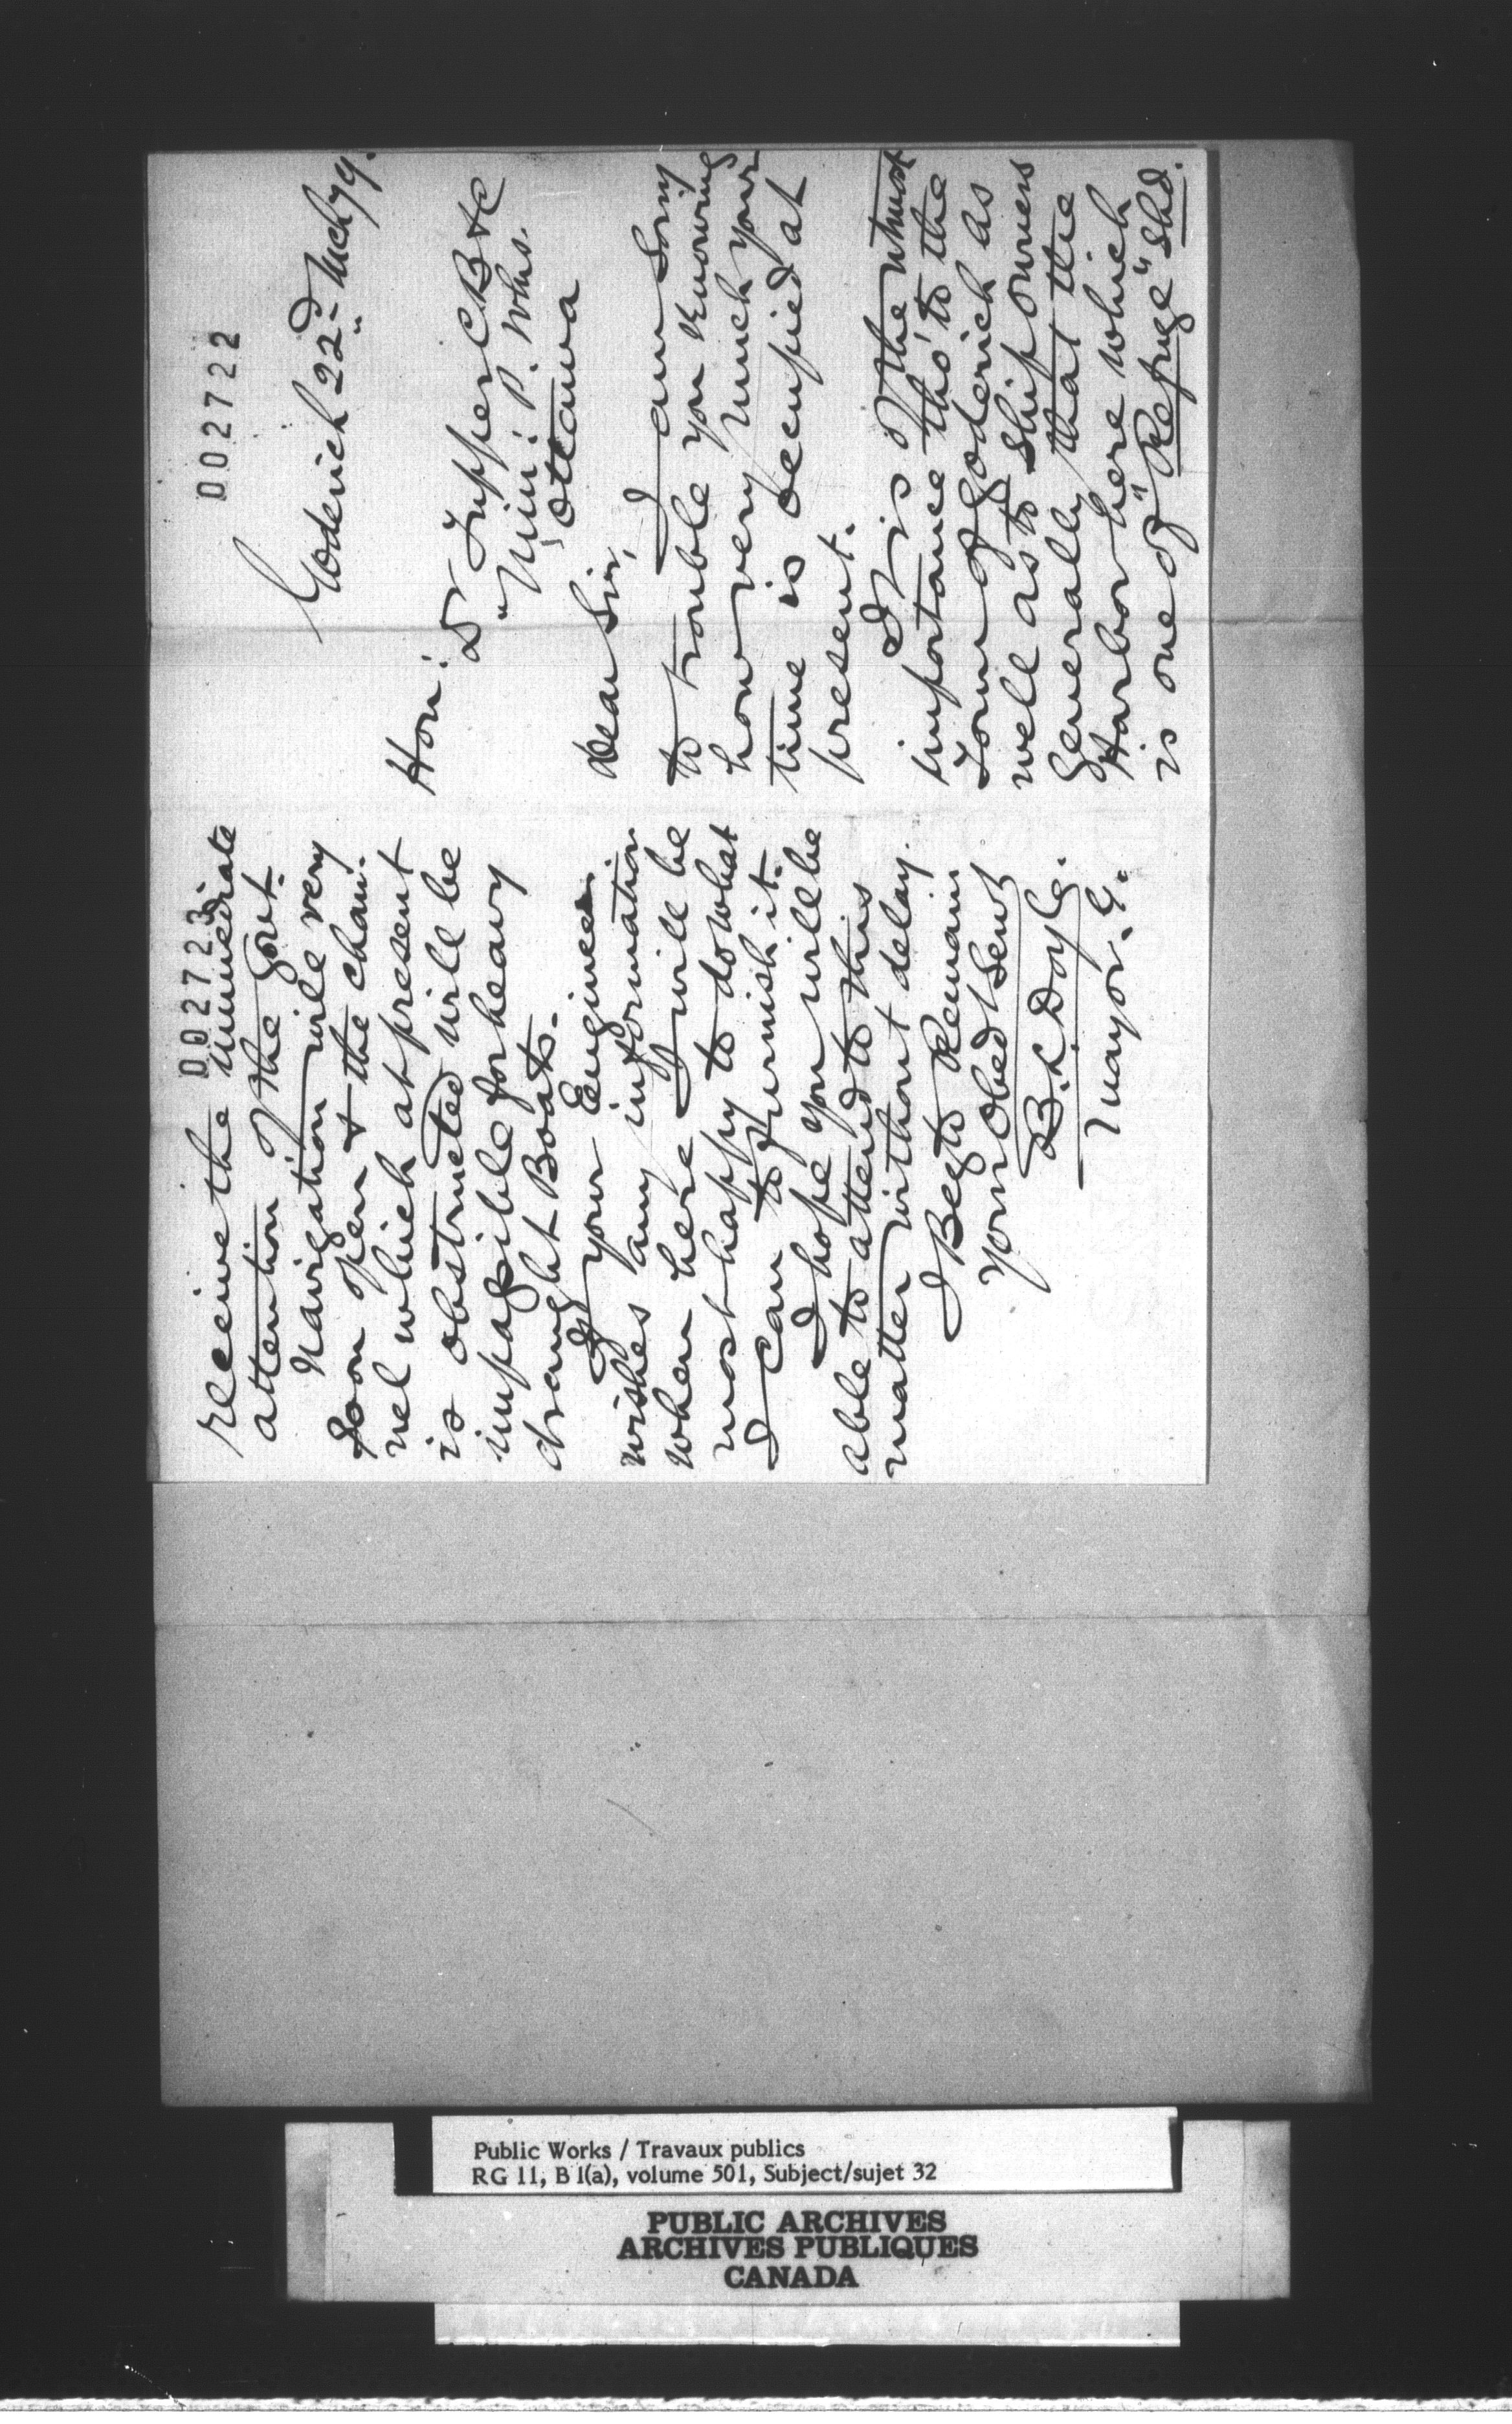 002722
Goderich 22nd Mch 79.
Hon:
Dr Tupper C.B &c
"Min: P. Wks.
Ottawa
Dear Sir,
I am sorry
to trouble you knowing
how very much your
time is occupied at
present.
It is of the utmost
importance tho' to the
Town of Goderich as
well as to Ship owners
generally that the
Harbor here which
is one of "Refuge" shd.
002723
receive the immediate
attention of the Govt.
Navigation will very
soon open & the chan-
nel which at present
is obstructed will be
impassible for heavy
draught Boats.
If your Engineer
wishes any information
when here I will be
most happy to do what
I can to furnish it.
I hope you will be
able to attend to this
matter without delay.
I Beg to Remain
Your Obed Servt
B. L. Doyle.
Mayor. G.
Public Works / Travaux publics
RG 11, B 1(a), volume 501, Subject/sujet 32
PUBLIC ARCHIVES
ARCHIVES PUBLIQUES
CANADA